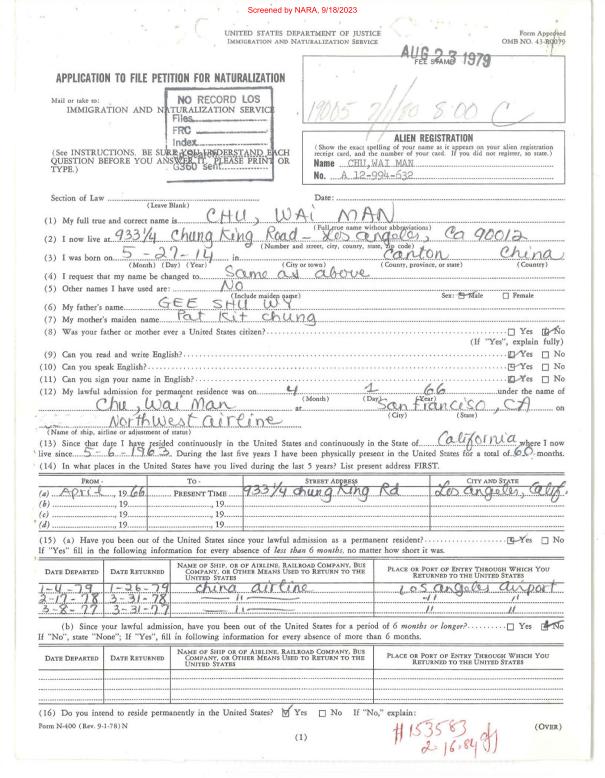 Screened by NARA, 9/18/2023
UNITED STATES DEPARTMENT OF JUSTICE
IMMIGRATION AND NATURALIZATION SERVICE
Form Approved
OMB NO. 43-R0079
AUG 23 1979
FEE STAMP
APPLICATION TO FILE PETITION FOR NATURALIZATION
Mail or take to:
IMMIGRATION AND NATURALIZATION SERVICE
NO RECORD LOS
Files
FRC
Index
G360 sent
(See INSTRUCTIONS. BE SURE YOU UNDERSTAND EACH
QUESTION BEFORE YOU ANSWER IT. PLEASE PRINT OR
TYPE.)
ALIEN REGISTRATION
(Show the exact spelling of your name as it appears on your alien registration
receipt card, and the number of your card. If you did not register, so state.)
Name CHU, WAI MAN
No. A 12-994-632
Section of Law
(Leave Blank)
Date:
(1) My full true and correct name is CHU, WAI MAN
(Full true name without abbreviations)
(2) I now live at 933 1/4 Chung King Road - Los angeles, Ca 90012
(Number and street, city, county, state, zip code)
(3) I was born on 5-27-14 in Canton China
(Month) (Day) (Year) (City or town) (County, province, or state) (Country)
(4) I request that my name be changed to Same as above
(5) Other names I have used are: No
(Include maiden name)
Sex: Male Female
(6) My father's name GEE SHU WY
(7) My mother's maiden name Pat Kit chung
(8) Was your father or mother ever a United States citizen? Yes No
(If "Yes", explain fully)
(9) Can you read and write English? Yes No
(10) Can you speak English? Yes No
(11) Can you sign your name in English? Yes No
(12) My lawful admission for permanent residence was on 4 1 66 under the name of
(Month) (Day) (Year)
Chu, Wai Man at San Franciso, CA on
(City) (State)
Northwest airline
(Name of ship, airline or adjustment of status)
(13) Since that date I have resided continuously in the United States and continuously in the State of California where I now
live since 5-6-1963. During the last five years I have been physically present in the United States for a total of 60 months.
(14) In what places in the United States have you lived during the last 5 years? List present address FIRST.
FROM - TO - STREET ADDRESS CITY AND STATE
(a) April, 1966 PRESENT TIME 933 1/4 chung King Rd Los Angeles, Calif.
(b) , 19 , 19
(c) , 19 , 19
(d) , 19 , 19
(15) (a) Have you been out of the United States since your lawful admission as a permanent resident? Yes No
If "Yes" fill in the following information for every absence of less than 6 months, no matter how short it was.
DATE DEPARTED DATE RETURNED NAME OF SHIP, OR OF AIRLINE, RAILROAD COMPANY, BUS COMPANY, OR OTHER MEANS USED TO RETURN TO THE UNITED STATES PLACE OR PORT OF ENTRY THROUGH WHICH YOU RETURNED TO THE UNITED STATES
1-4-79 1-26-79 china airline Los angeles airport
2-17-78 3-31-78 " " "
3-8-77 3-31-77 " " "
(b) Since your lawful admission, have you been out of the United States for a period of 6 months or longer? Yes No
If "No", state "None"; If "Yes", fill in following information for every absence of more than 6 months.
DATE DEPARTED DATE RETURNED NAME OF SHIP, OR OF AIRLINE, RAILROAD COMPANY, BUS COMPANY, OR OTHER MEANS USED TO RETURN TO THE UNITED STATES PLACE OR PORT OF ENTRY THROUGH WHICH YOU RETURNED TO THE UNITED STATES
(16) Do you intend to reside permanently in the United States? Yes No If "No," explain:
Form N-400 (Rev. 9-1-78) N
(1)
(OVER)
#153583
2-16-84